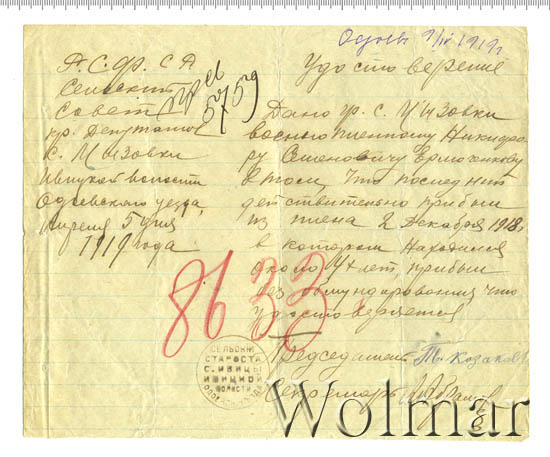 Одоевъ 9/IV 1919 г.
Р.С.Ф.С.Р.
Сельский
Совет
кр. Депутатов
с. Ивизовки
Ивицкой волости
Одоевского уезда,
Апреля 5 дня
1919 года
5759
Удостоверение
Дано гр. с.
военнопленному Никифо-
ру Семеновичу Ермоченкову
в том, что последний
действительно прибыл
из плена 2 декабря 1918 г.
в котором находился
около 4х лет прибыл
без обмундирования что
удостоверяется
8633
Председатель Т. Козаков
Секретарь
СЕЛЬСКІЙ
СТАРОСТА
С. ИВИЦЫ
ИВИЦКОЙ
ВОЛОСТИ
Wolmar